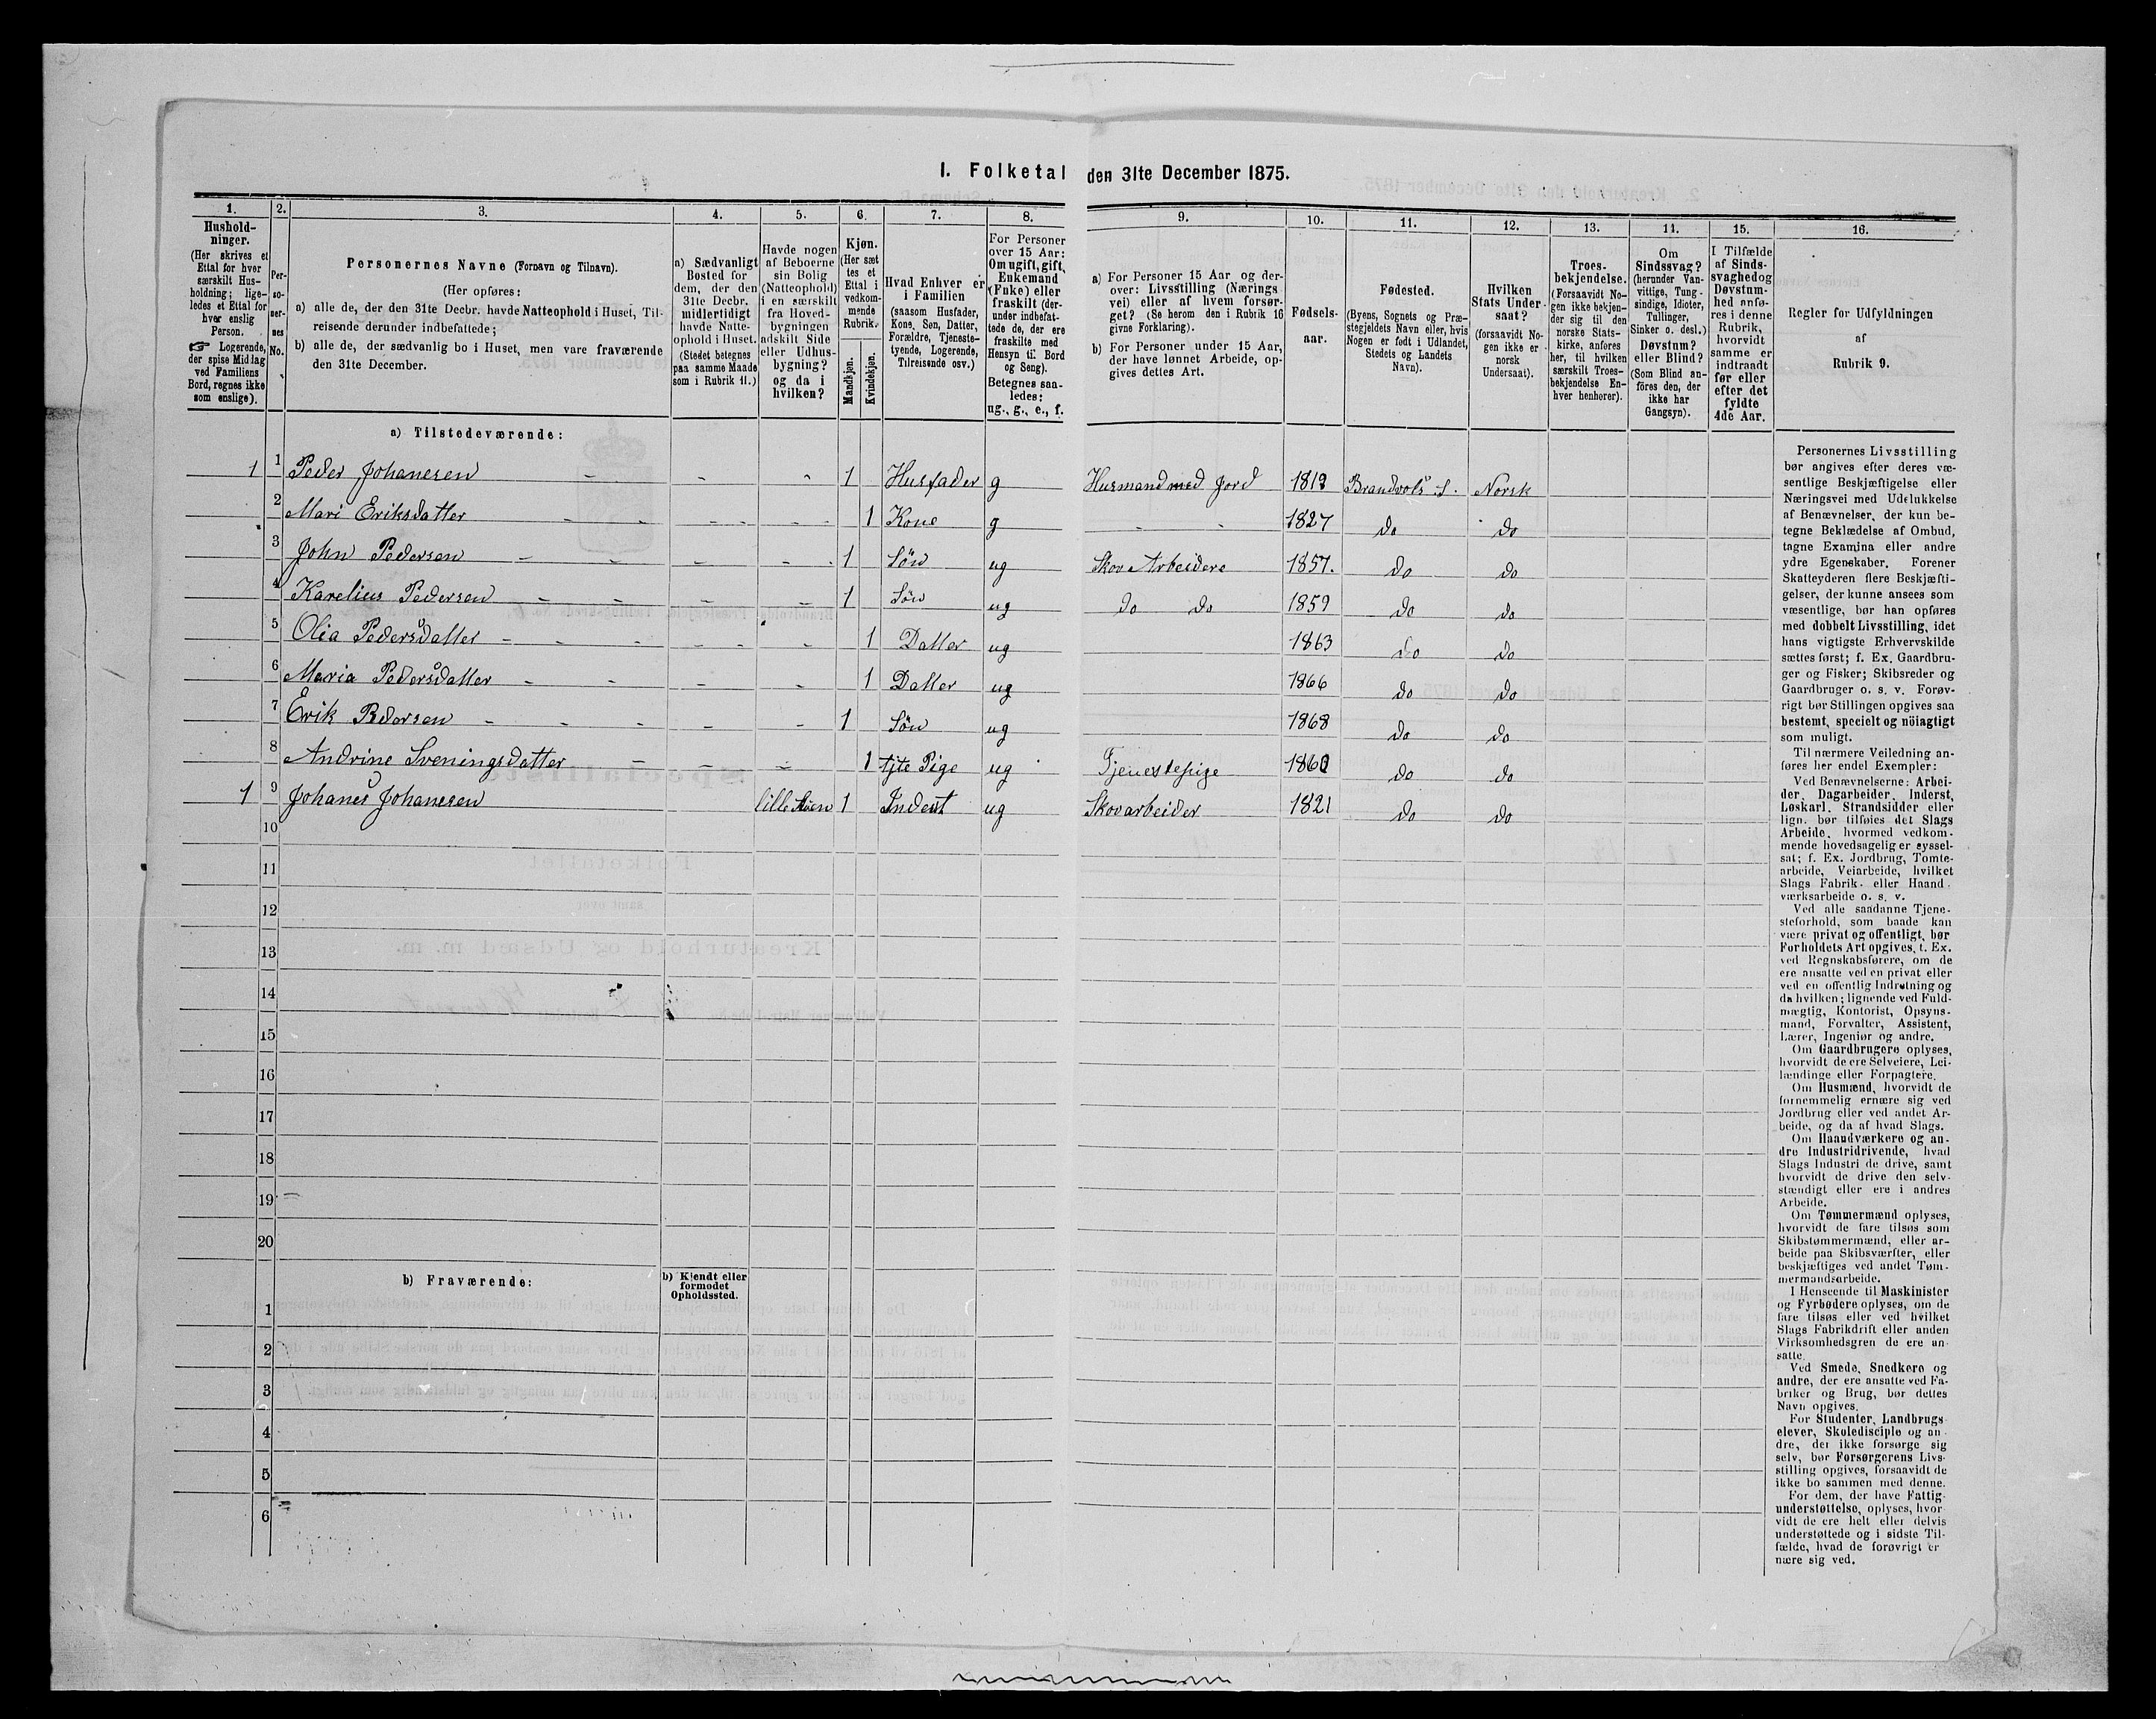 I. Folketal den 31te December 1875.
1. 2. 3. 4. 5. 6. 7. 8. 9. 10. 11. 12. 13. 14. 15. 16.
Hushold-
ninger.
(Her skrives et
Ettal for hver
særskilt Hus-
holdning; lige-
ledes et Ettal for
hver enslig
Person.
☞ Logerende,
der spise Middag
ved Familiens
Bord, regnes ikke
som enslige).
Per-
so-
ner-
nes
No.
Personernes Navne (Fornavn og Tilnavn).
(Her opføres:
a) alle de, der den 31te Decbr. havde Natteophold i Huset, Til-
reisende derunder indbefattede;
b) alle de, der sædvanlig bo i Huset, men vare fraværende
den 31te December.
a) Sædvanligt
Bosted for
dem, der den
31te Decbr.
midlertidigt
havde Natte-
ophold i Huset.
(Stedet betegnes
paa samme Maade
som i Rubrik 11.)
Havde nogen
af Beboerne
sin Bolig
(Natteophold)
i en særskilt
fra Hoved-
bygningen
adskilt Side
eller Udhus-
bygning?
og da i
hvilken?
Kjøn.
(Her sæt
tes et
Ettal i
vedkom-
mende
Rubrik.
Mandkjøn.
Kvindekjøn.
Hvad Enhver er
i Familien
(saasom Husfader,
Kone, Søn, Datter,
Forældre, Tjeneste-
tyende, Logerende,
Tilreisende osv.)
For Personer
over 15 Aar:
Om ugift, gift,
Enkemand
(Enke) eller
fraskilt (der-
under indbefat-
tede de, der ere
fraskilte med
Hensyn til Bord
og Seng).
Betegnes saa-
ledes:
ug., g., e., f.
a) For Personer 15 Aar og der-
over: Livsstilling (Nærings
vei) eller af hvem forsør-
get? (Se herom den i Rubrik 16
givne Forklaring).
b) For Personer under 15 Aar,
der have lønnet Arbeide, op-
gives dettes Art.
Fødsels-
aar.
Fødested.
(Byens, Sognets og Præ-
stegjeldets Navn eller, hvis
Nogen er født i Udlandet,
Stedets og Landets
Navn).
Hvilken
Stats Under-
saat?
(forsaavidt No-
gen ikke er
norsk
Undersaat).
Troes-
bekjendelse.
(Forsaavidt No-
gen ikke bekjen-
der sig til den
norske Stats-
kirke, anføres
her, til hvilken
særskilt Troes-
bekjendelse En-
hver henhører).
Om
Sindssvag?
(herunder Van-
vittige, Tung-
sindige, Idioter,
Tullinger,
Sinker o. desl.)
Døvstum?
eller Blind?
(Som Blind an-
föres den, der
ikke har
Gangsyn).
I Tilfælde
af Sinds-
svaghed og
Døvstum-
hed anfø-
res i denne
Rubrik,
hvorvidt
samme er
indtraadt
før eller
efter det
fyldte
4de Aar.
Regler for Udfyldningen
af
Rubrik 9.
a) Tilstedeværende:
1 1 Peder Johanesen - - - 1 Husfader g Husmand med Jord 1812 Brandvols S. Norsk
2 Mari Eriksdatter 1 Kone g - - 1827 do do
3 John Pedersen 1 Søn ug Skov Arbeidere 1857. do do
4 Karelius Pedersen 1 Søn ug do do 1859 do do
5 Olia Pedersdatter 1 Datter ug 1863 do do
6 Maria Pedersdatter 1 Datter ug 1866 do do
7 Erik Pedersen 1 Søn ug 1868 do do
8 Andrine Sveningsdatter 1 tjte Pige ug Tjenestepige 1860 do do
1 9 Johanes Johanesen lille Stuen 1 Inderst ug Skovarbeider 1821 do do
10
11
12
13
14
15
16
17
18
19
20
b) Fraværende:
b) Kjendt eller
formodet
Opholdssted.
1
2
3
4
5
6
Personernes Livsstilling
bør angives efter deres væ-
sentlige Beskjæftigelse eller
Næringsvei med Udelukkelse
af Benævnelser, der kun be-
tegne Beklædelse af Ombud,
tagne Examina eller andre
ydre Egenskaber. Forener
Skatteyderen flere Beskjæfti-
gelser, der kunne ansees som
væsentlige, bør han opføres
med dobbelt Livsstilling, idet
hans vigtigste Erhvervskilde
sættes først; f. Ex. Gaardbru-
ger og Fisker; Skibsreder og
Gaardbruger o. s. v. Forøv-
rigt bør Stillingen opgives saa
bestemt, specielt og nöiagtigt
som muligt.
Til nærmere Veiledning an-
føres her endel Exempler:
Ved Benævnelserne: Arbei-
der, Dagarbeider, Inderst,
Løskarl, Strandsidder eller
lign. bør tilføies det Slags
Arbeide, hvormed vedkom-
mende hovedsagelig er syssel-
sat; f. Ex. Jordbrug, Tomte-
arbeide, Veiarbeide, hvilket
Slags Fabrik- eller Haand-
værksarbeide o. s. v.
Ved alle saadanne Tjene-
steforhold, som baade kan
være privat og offentligt, bør
Forholdets Art opgives, t. Ex.
ved Regnskabsførere, om de
ere ansatte ved en privat eller
ved en offentlig Indretning og
da hvilken; lignende ved Fuld-
mægtig, Kontorist, Opsyns-
mand, Forvalter, Assistent,
Lærer, Ingeniør og andre.
Om Gaardbrugere oplyses,
hvorvidt de ere Selveiere, Lei-
lændinge eller Forpagtere.
Om Husmænd, hvorvidt de
fornemmelig ernære sig ved
Jordbrug eller ved andet Ar-
beide, og da af hvad Slags.
Om Haandværkere og an-
dre Industridrivende, hvad
Slags Industri de drive, samt
hvorvidt de drive den selv-
stændigt eller ere i andres
Arbeide.
Om Tømmermænd oplyses,
hvorvidt de fare tilsøs som
Skibstømmermænd, eller ar-
beide paa Skibsværfter, eller
beskjæftiges ved andet Tøm-
mermandsarbeide.
I Henseende til Maskinister
og Fyrbødere oplyses, om de
fare tilsøs eller ved hvilket
Slags Fabrikdrift eller anden
Virksomhedsgren de ere an-
satte.
Ved Smede, Snedkere og
andre, der ere ansatte ved Fa-
briker og Brug, bør dettes
Navn opgives.
For Studenter, Landbrugs
elever, Skoledisciple og an-
dre, der ikke forsørge sig
selv, bør Forsørgerens Livs-
stilling opgives, forsaavidt de
ikke bo sammen med denne.
For dem, der have Fattig-
understøttelse, oplyses, hvor-
vidt de ere helt eller delvis
understøttede og i sidste Til-
fælde, hvad de forøvrigt er
nære sig ved.